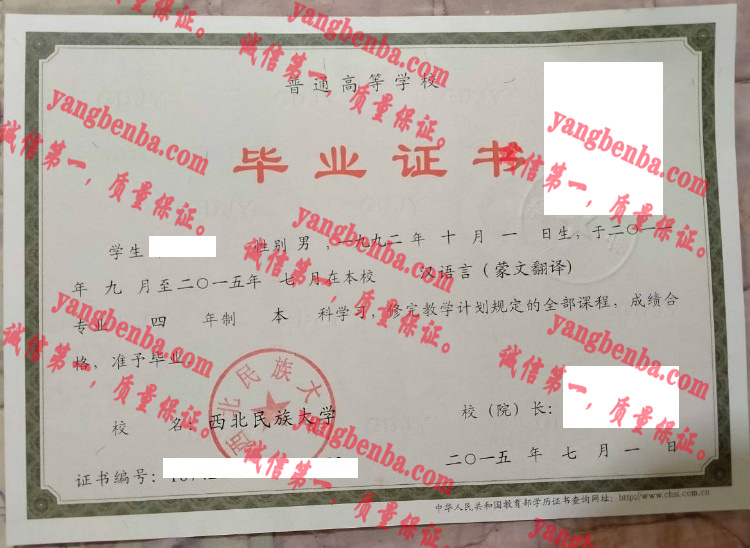 普通高等学校
毕业证书
学生 性别 男 ,一九九二 年 十 月 一 日生, 于二〇一一
年 九 月至二〇一五年 七 月在本校 汉语言 (蒙文翻译)
专业 四 年制 本 科学习, 修完教学计划规定的全部课程, 成绩合
格, 准予毕业
校 名: 西北民族大学
校 (院) 长:
西北民族大
证书编号:
二〇一五 年 七 月 一 日
中华人民共和国教育部学历证书查询网址: http://www.chsi.com.cn
yangbenba.com
诚信第一, 质量保证。
yangbenba.com
诚信第一, 质量保证。
yangbenba.com
诚信第一, 质量保证。
yangbenba.com
诚信第一, 质量保证。
yangbenba.com
诚信第一, 质量保证。
yangbenba.com
诚信第一, 质量保证。
yangbenba.com
诚信第一, 质量保证。
yangbenba.com
诚信第一, 质量保证。